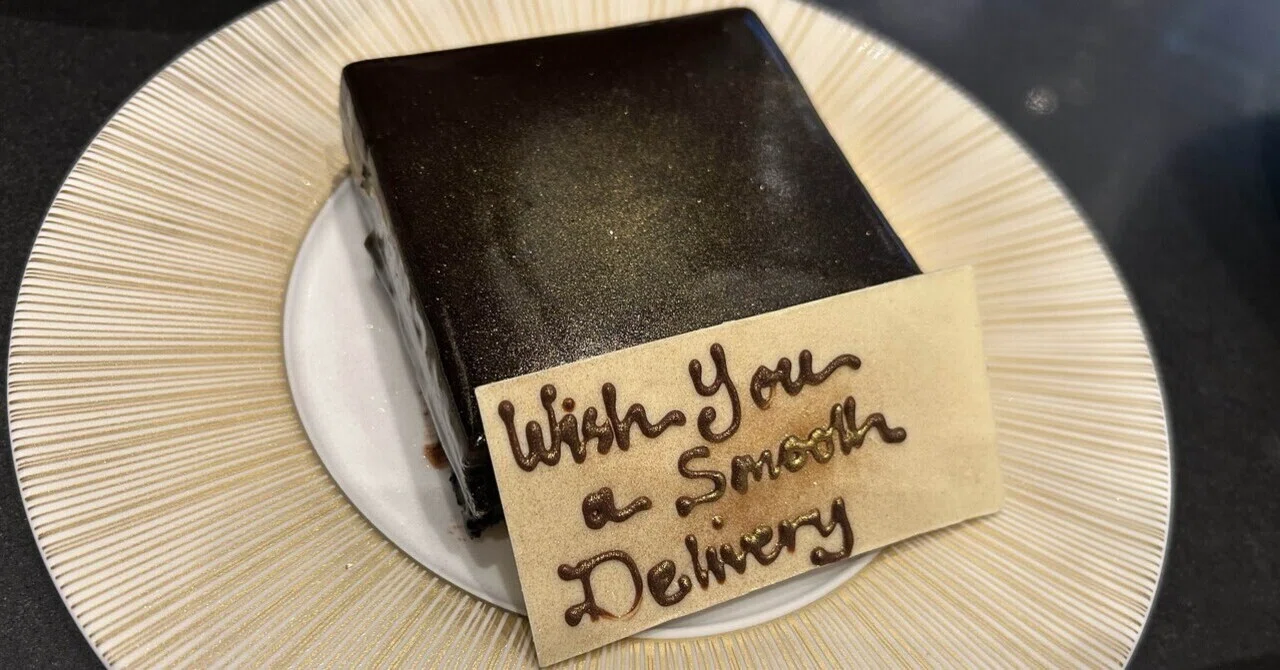 Wish You
a Smooth
Delivery